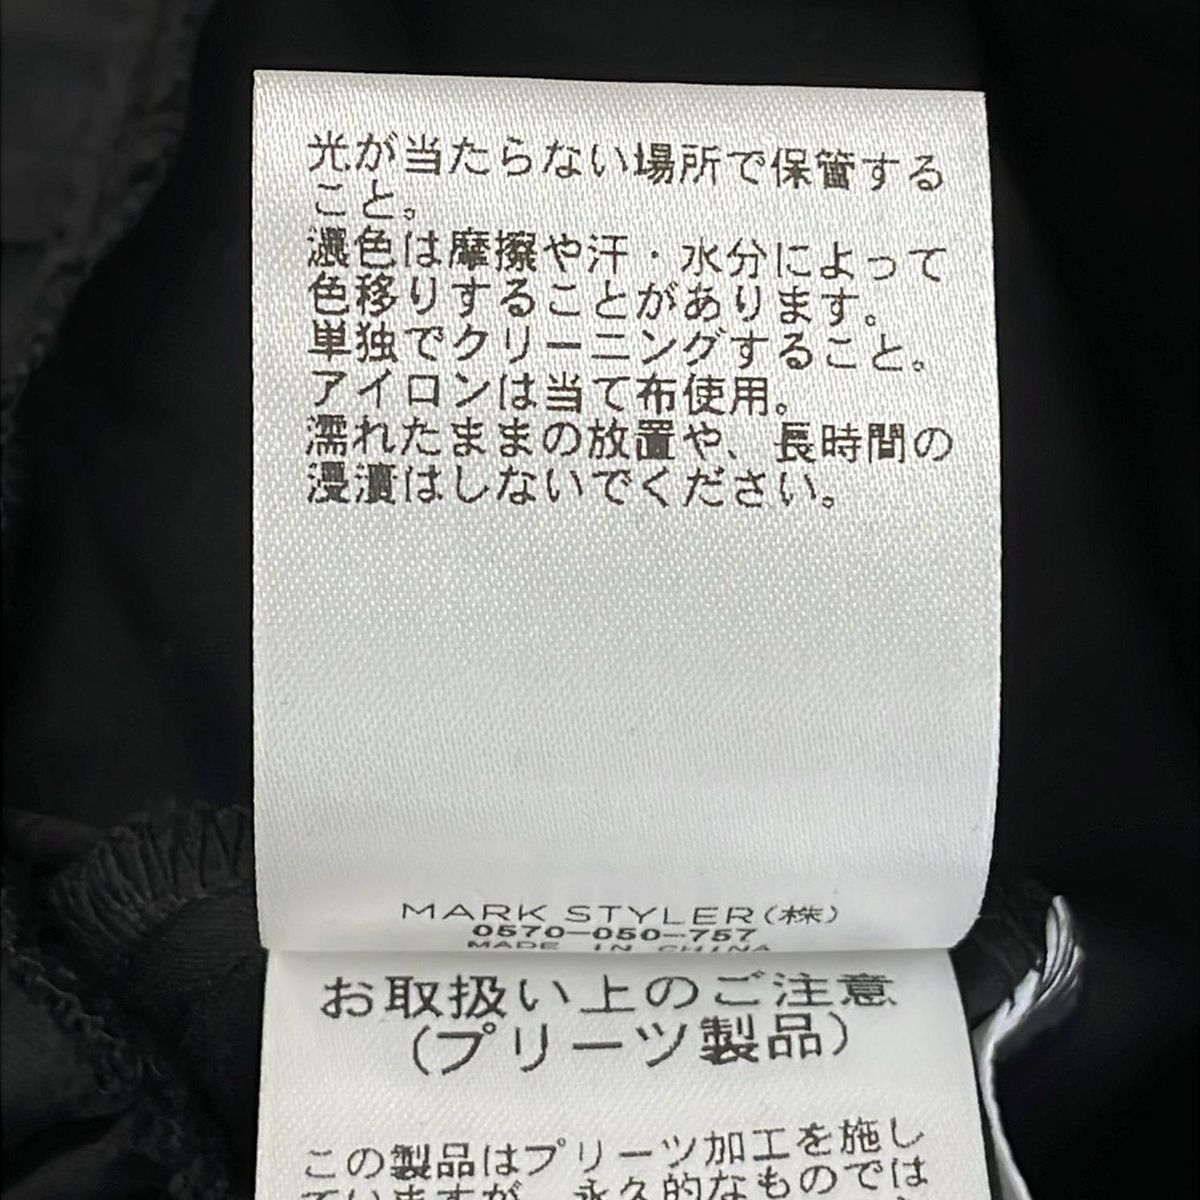 光が当たらない場所で保管する
こと。
濃色は摩擦や汗・水分によって
色移りすることがあります。
単独でクリーニングすること。
アイロンは当て布使用。
濡れたままの放置や、長時間の
浸漬はしないでください。
MARK STYLER(株)
0570-050-757
MADE IN CHINA
お取扱い上のご注意
(プリーツ製品)
この製品はプリーツ加工を施し
ていますが、永久的なものでは